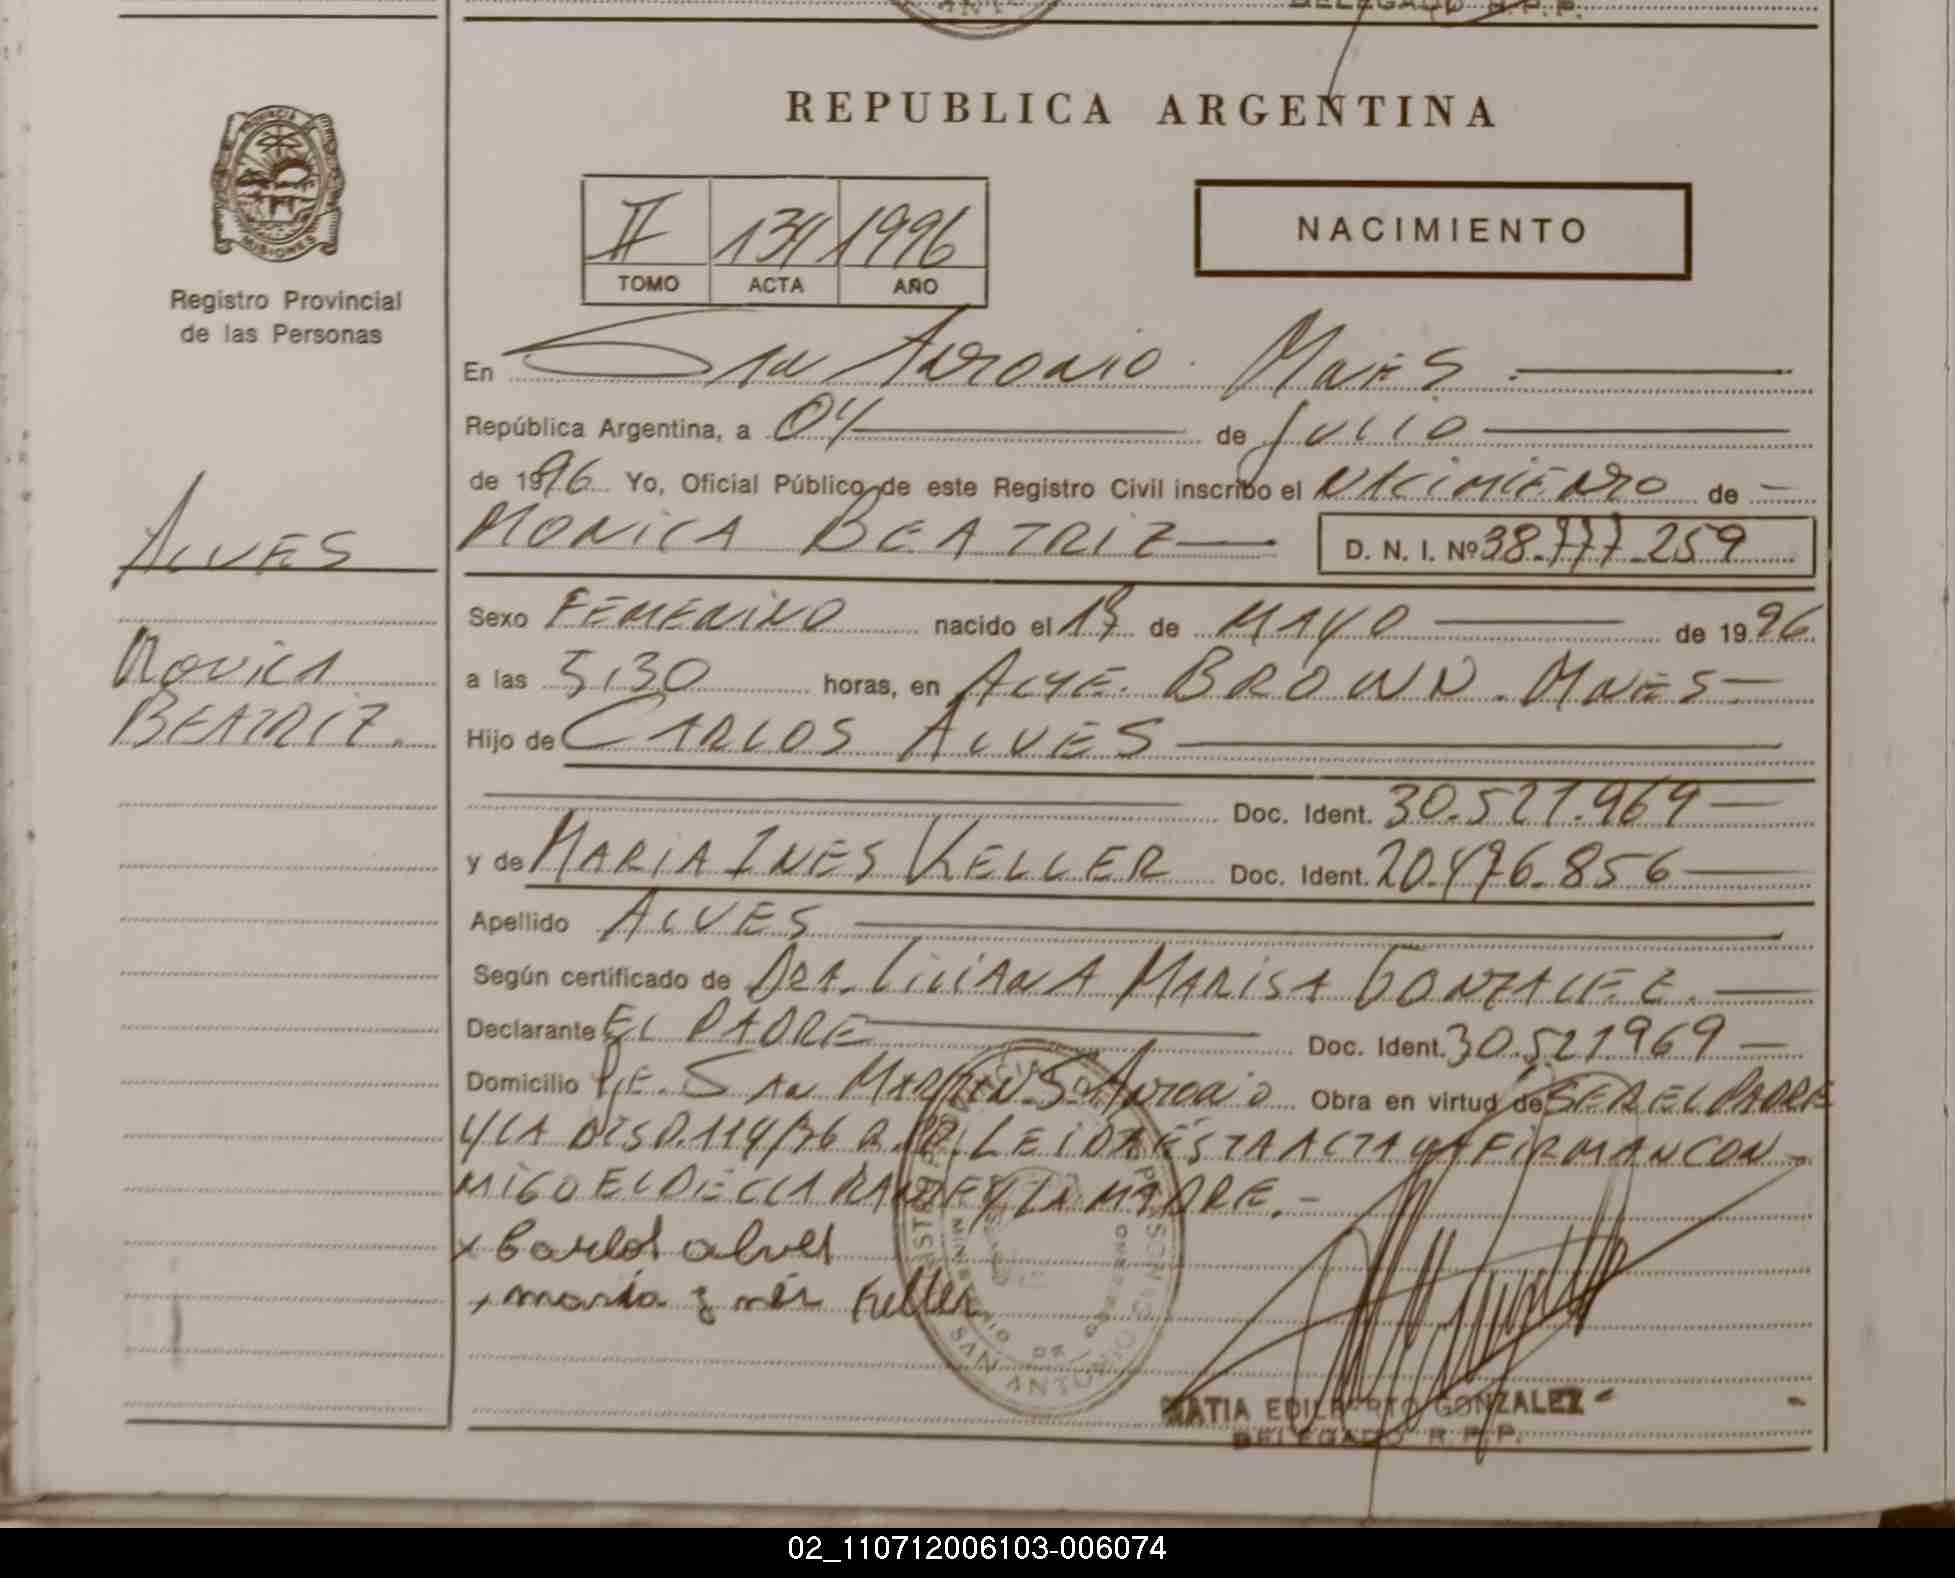 DELEGADO R.P.P.
REPUBLICA ARGENTINA
PROVINCIA DE
MISIONES
Registro Provincial
de las Personas
II 134 1996
TOMO ACTA AÑO
NACIMIENTO
En San Antonio Mnes
República Argentina, a 04 de Julio
de 1996 Yo, Oficial Público de este Registro Civil inscribo el NACIMIENTO de
MONICA BEATRIZ D. N. I. Nº 38.777.259
ALVES
MONICA
BEATRIZ.
Sexo FEMENINO nacido el 17 de MAYO de 1996
a las 5,30 horas, en ALTE. BROWN. MNES
Hijo de CARLOS ALVES
Doc. Ident. 30.521.969
y de MARIA INES KELLER Doc. Ident. 20.476.856
Apellido ALVES
Según certificado de DRA. LILIANA MARISA
Declarante EL PADRE Doc. Ident. 30.521969
Domicilio SAN MARTIN S. Antonio Obra en virtud de SER EL PADRE
Y LA DISP. 114/96 LEIDA ESTA ACTA LA FIRMAN CON
MIGO EL DECLARANTE Y LA MADRE.-
x Carlos alves
x maria ynés Keller
SAN ANTONIO
MATIA EDILBERTO GONZALEZ
DELEGADO R.P.P.
02_110712006103-006074